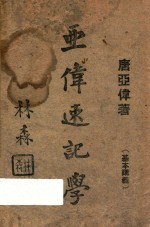 唐亞偉著
(基本講義)
亞偉速記學
林森